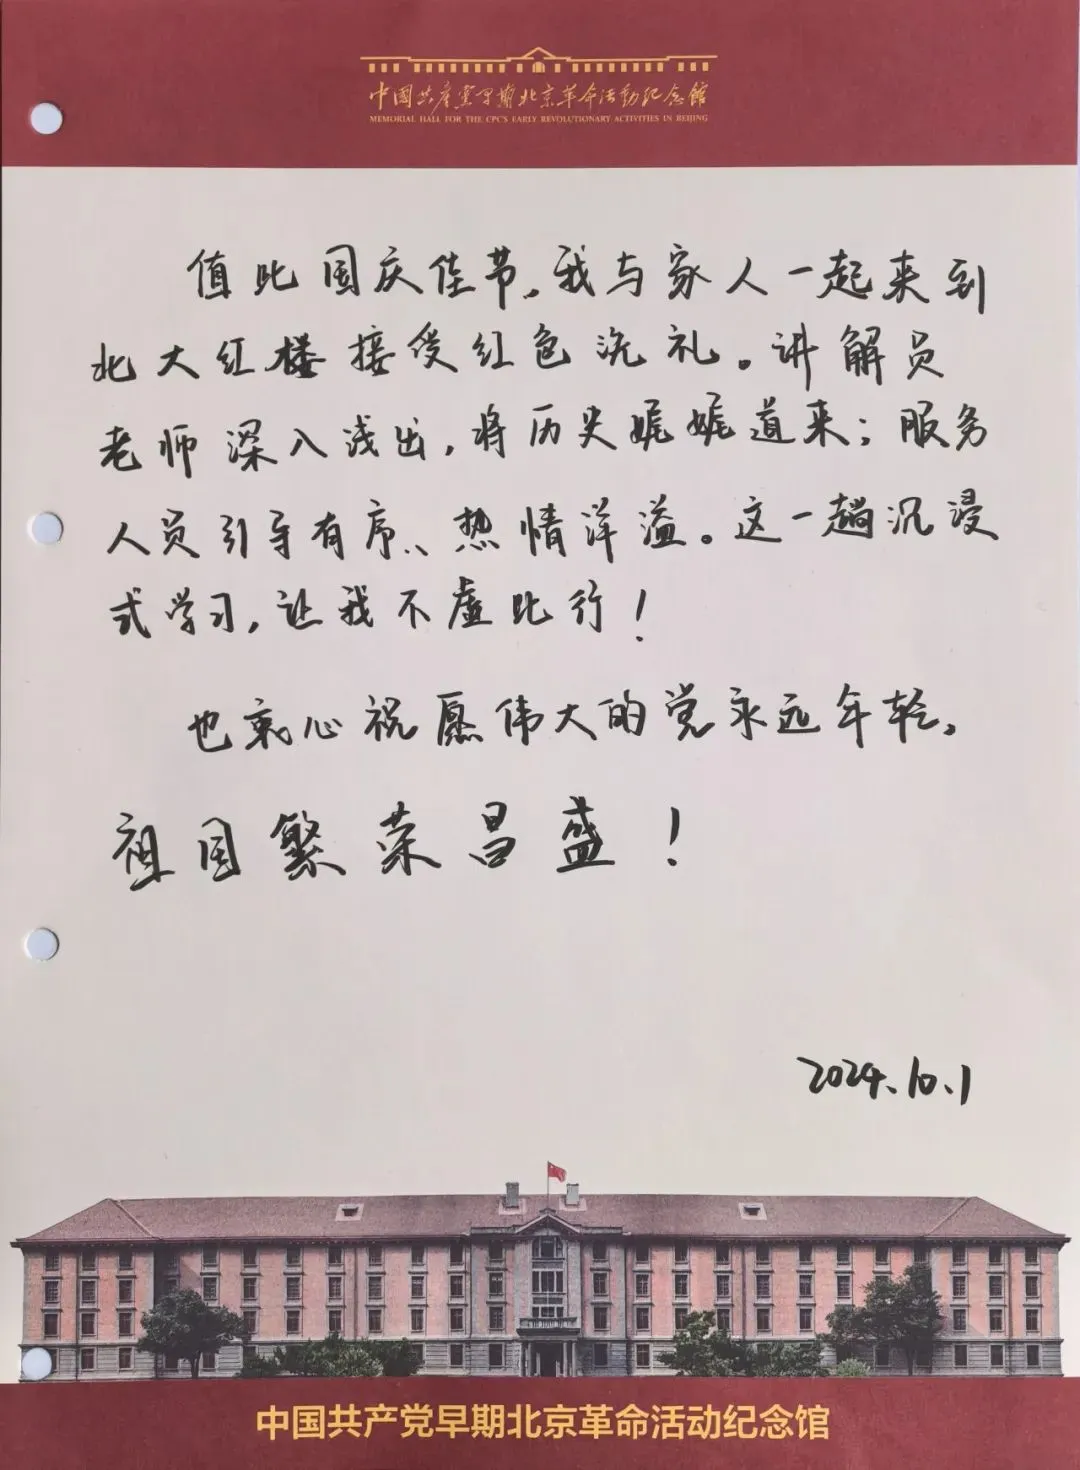 中国共产党早期北京革命活动纪念馆
MEMORIAL HALL FOR THE CPC'S EARLY REVOLUTIONARY ACTIVITIES IN BEIJING
值此国庆佳节,我与家人一起来到
北大红楼接受红色洗礼。讲解员
老师深入浅出,将历史娓娓道来;服务
人员引导有序、热情洋溢。这一趟沉浸
式学习,让我不虚此行!
也衷心祝愿伟大的党永远年轻,
祖国繁荣昌盛!
2024.10.1
中国共产党早期北京革命活动纪念馆